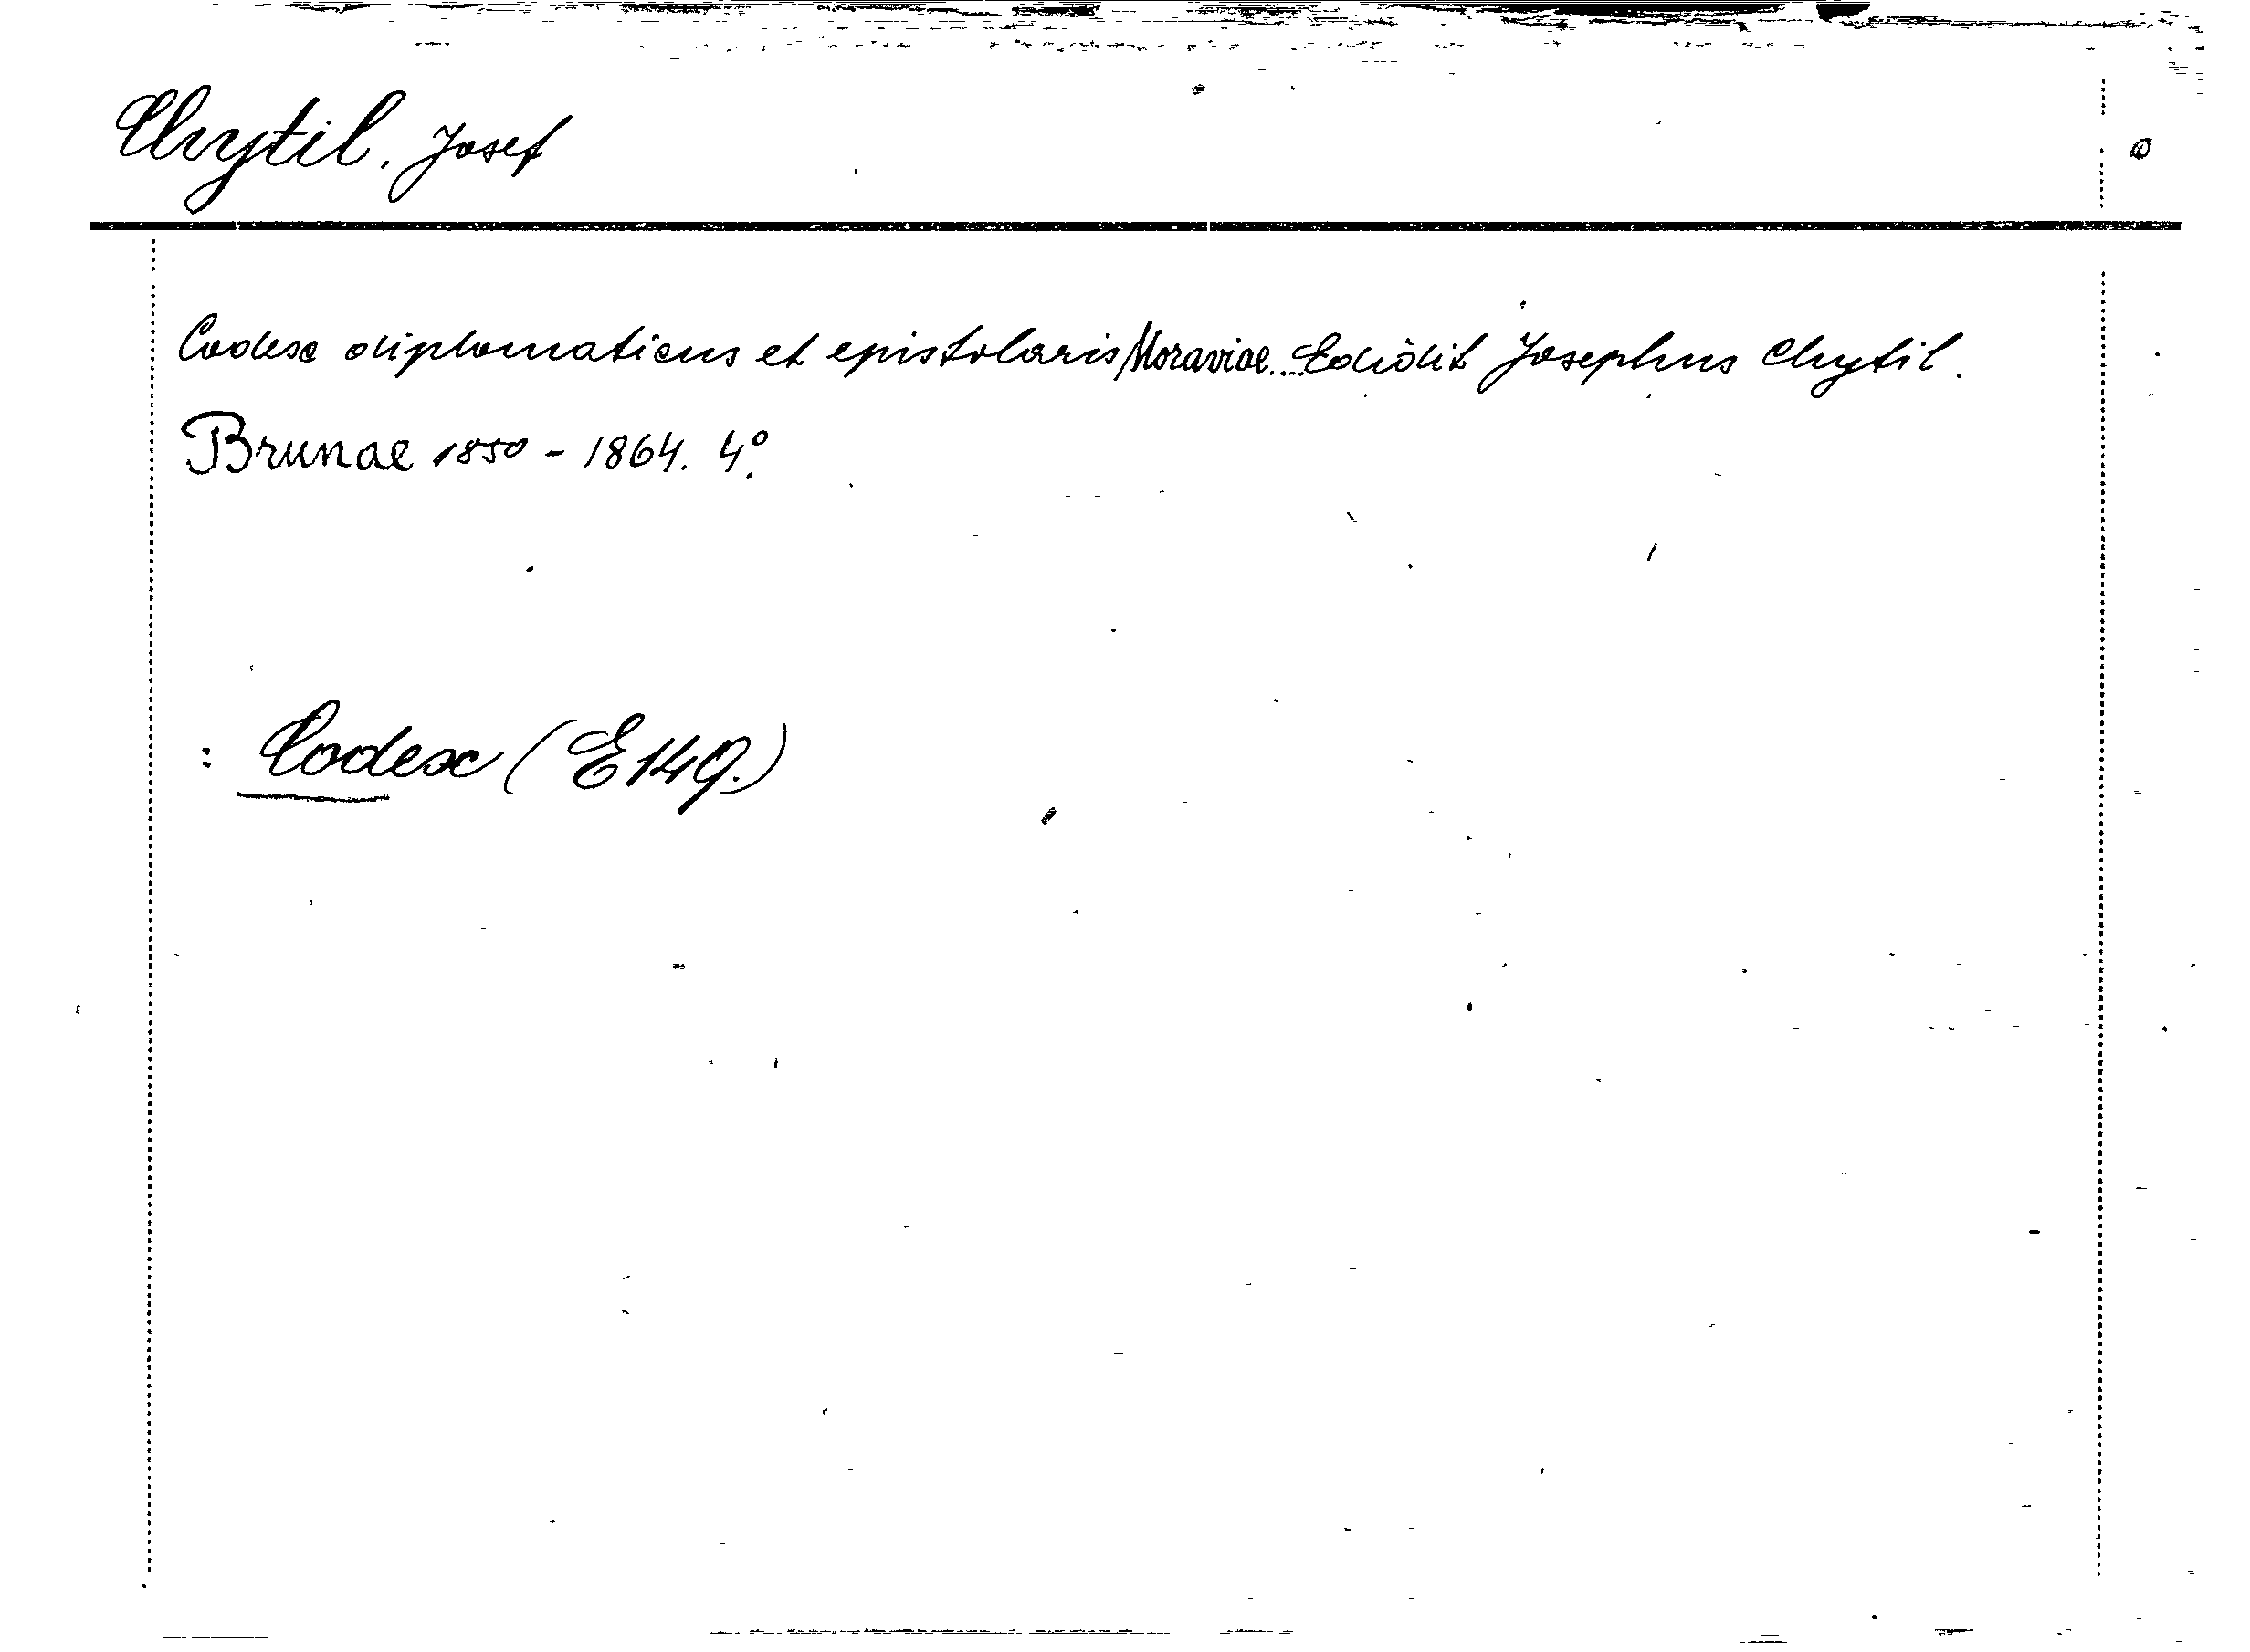 Chytil, Josef
Codex diplomaticus et epistolaris Moraviae.... Edidit Josephus Chytil.
Brunae 1850 - 1864. 4°.
: Codex (E 149.)